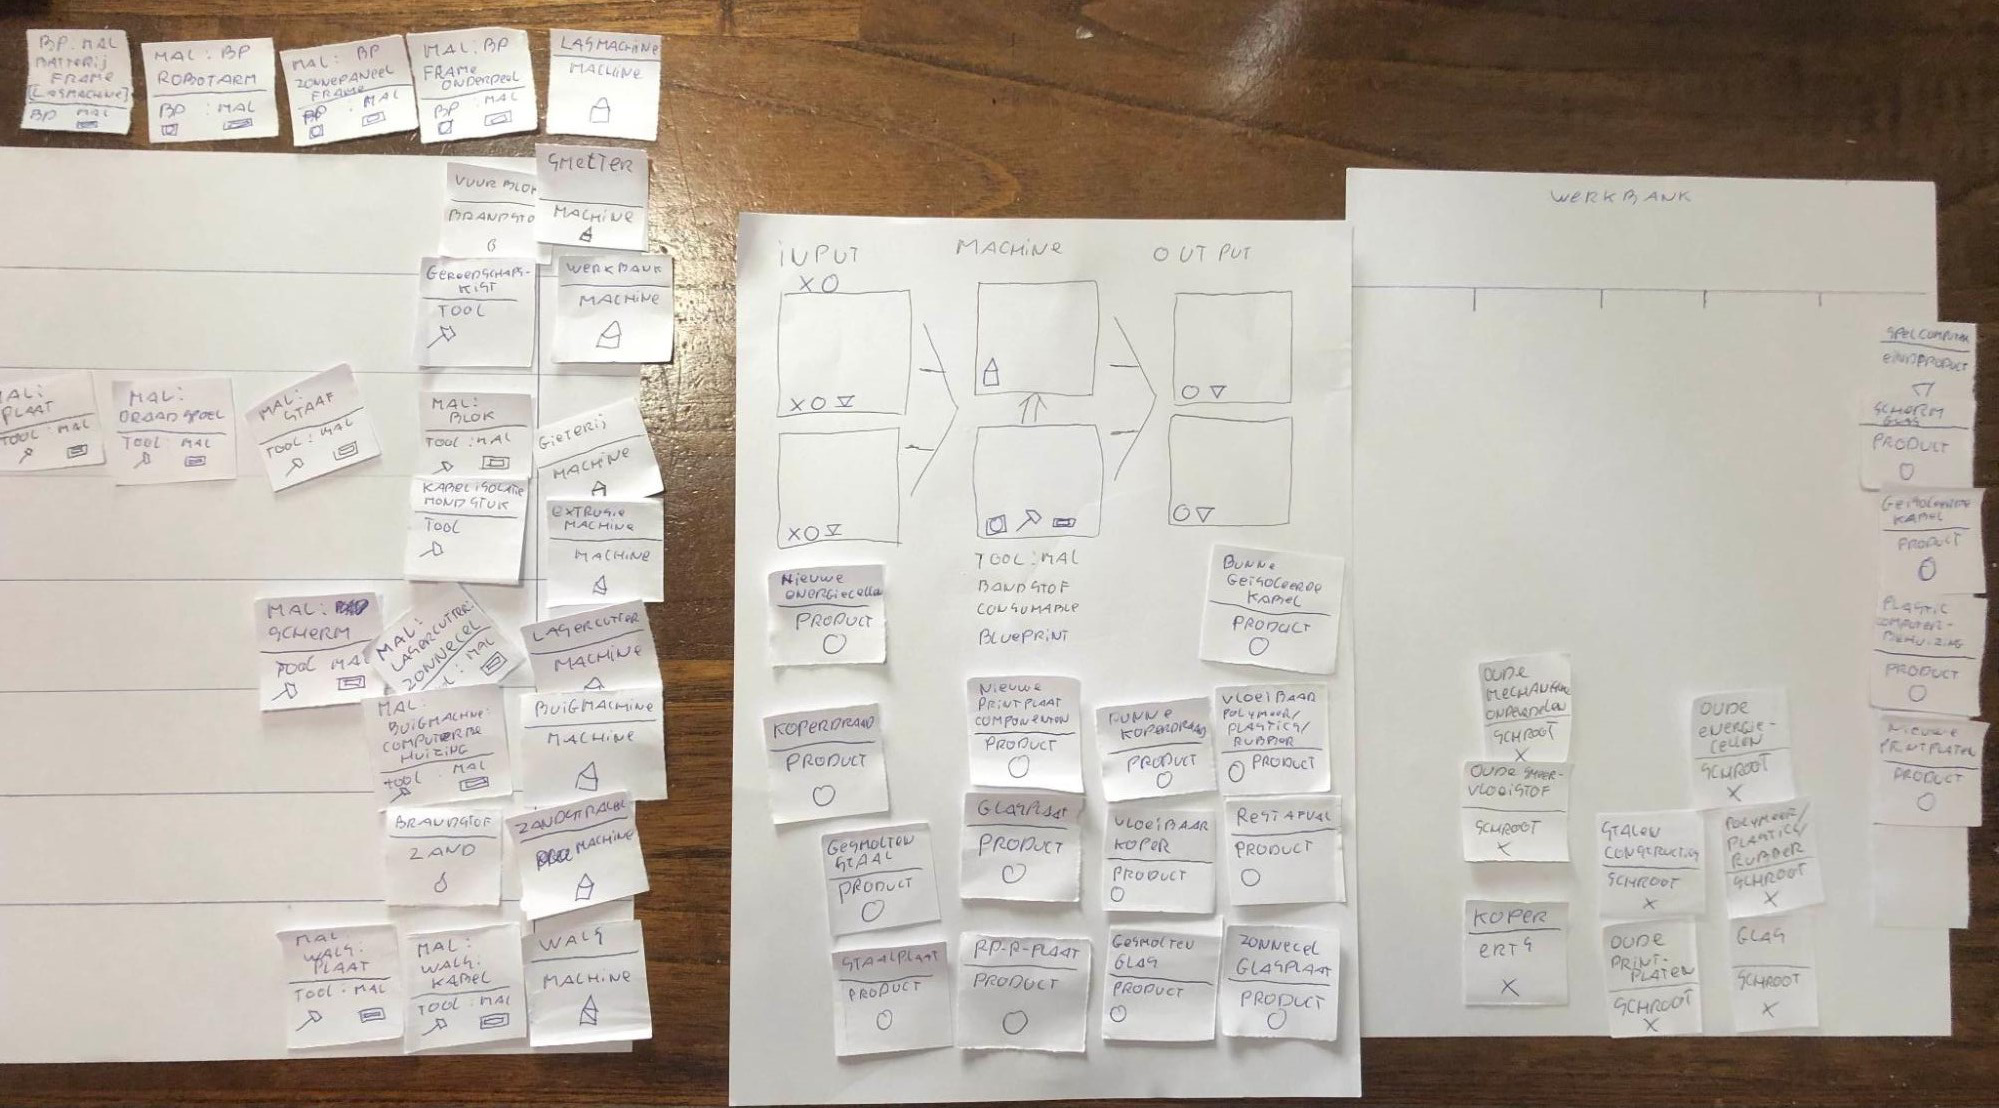 BP: MAL
BATTERIJ
FRAME
[LASMACHINE]
BP MAL
MAL: BP
ROBOTARM
BP : MAL
MAL: BP
ZONNEPANEEL
FRAME
BP : MAL
MAL: BP
FRAME
ONDERDEEL
BP : MAL
LASMACHINE
MACHINE
VUURBLOK
BRANDSTO
SMELTER
MACHINE
GEREEDSCHAPS-
KIST
TOOL
WERKBANK
MACHINE
MAL:
PLAAT
TOOL : MAL
MAL:
DRAADSPOEL
TOOL : MAL
MAL:
STAAF
TOOL : MAL
MAL:
BLOK
TOOL : MAL
GIETERIJ
MACHINE
KABELISOLATIE
MONDSTUK
TOOL
EXTRUSIE
MACHINE
MACHINE
MAL:
SCHERM
TOOL MAL
MAL:
LASERCUTTER:
ZONNECEL
: MAL
LASERCUTTER
MACHINE
MAL:
BUIGMACHINE:
COMPUTERBE
HUIZING
TOOL : MAL
BUIGMACHINE
MACHINE
BRANDSTOF
ZAND
ZANDSTRALER
MACHINE
MAL:
WALS:
PLAAT
TOOL : MAL
MAL:
WALS:
KABEL
TOOL : MAL
WALS
MACHINE
INPUT
MACHINE
OUTPUT
X O
X O
X O
TOOL : MAL
BANDSTOF
CONSUMABLE
BLUEPRINT
NIEUWE
ENERGIECELLEN
PRODUCT
DUNNE
GEISOLEERDE
KABEL
PRODUCT
KOPERDRAAD
PRODUCT
NIEUWE
PRINTPLAAT
COMPONENTEN
PRODUCT
DUNNE
KOPERDRAAD
PRODUCT
VLOEIBAAR
POLYMEER/
PLASTICS/
RUBBER
PRODUCT
GESMOLTEN
STAAL
PRODUCT
GLASPLAAT
PRODUCT
VLOEIBAAR
KOPER
PRODUCT
RESTAFVAL
PRODUCT
STAALPLAAT
PRODUCT
PRODUCT
GESMOLTEN
GLAS
PRODUCT
ZONNECEL
GLASPLAAT
PRODUCT
WERKBANK
SPELCOMPUTER
EINDPRODUCT
SCHERM
GLAS
PRODUCT
GEISOLEERDE
KABEL
PRODUCT
PLASTIC
COMPUTER-
BEHUIZING
PRODUCT
NIEUWE
PRINTPLATEN
PRODUCT
OUDE
MECHANISCHE
ONDERDELEN
SCHROOT
X
OUDE
ENERGIE-
CELLEN
SCHROOT
X
OUDE SMEER-
VLOEISTOF
SCHROOT
X
STALEN
CONSTRUCTIES
SCHROOT
X
POLYMEER/
PLASTICS/
RUBBER
SCHROOT
X
KOPER
ERTS
X
OUDE
PRINT-
PLATEN
SCHROOT
X
GLAS
SCHROOT
X